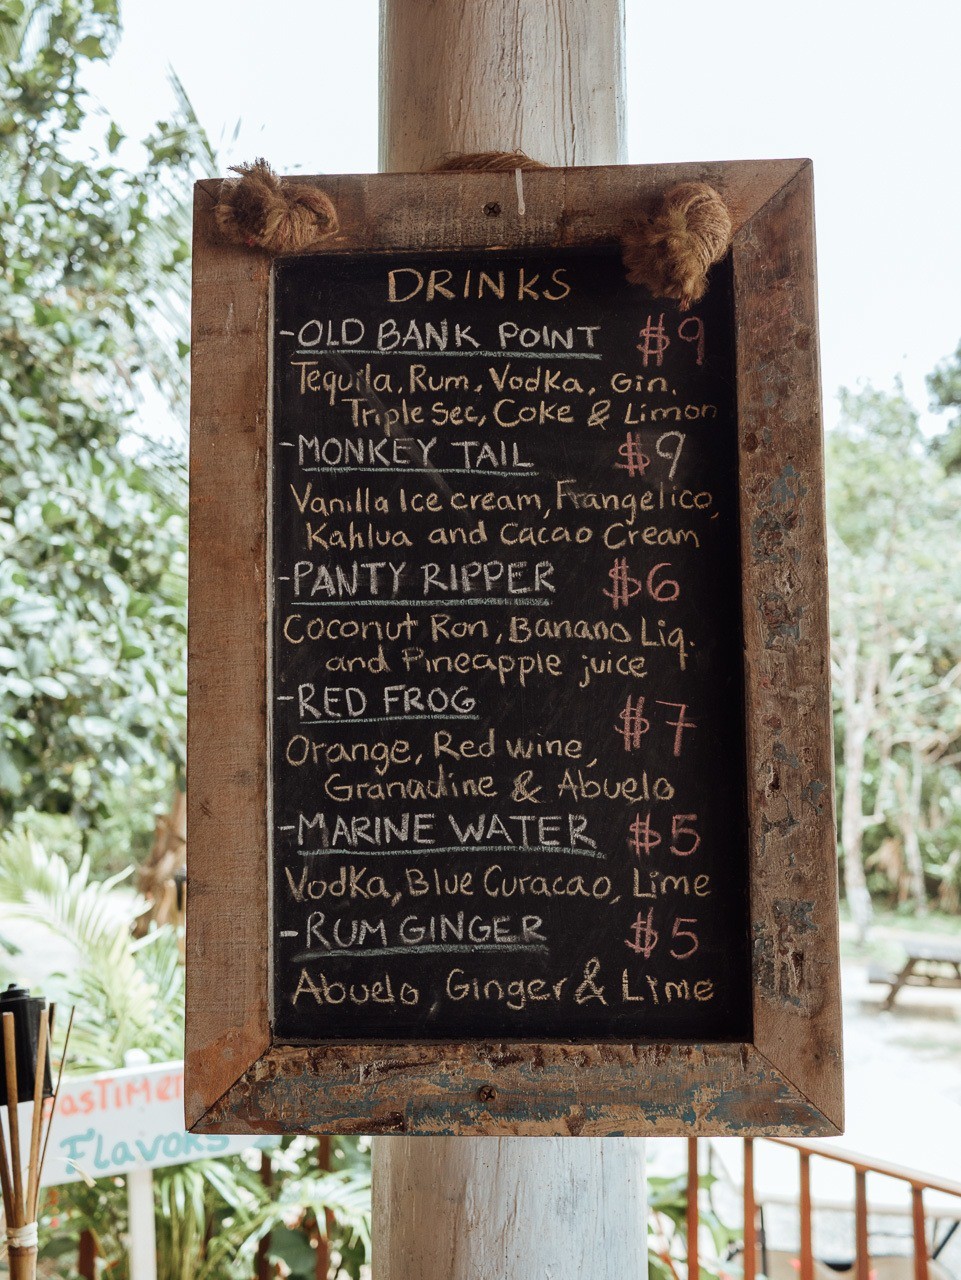 DRINKS
-OLD BANK POINT $9
Tequila, Rum, Vodka, Gin,
Triple Sec, Coke & Limon
-MONKEY TAIL $9
Vanilla Ice cream, Frangelico,
Kahlua and Cacao Cream
-PANTY RIPPER $6
Coconut Ron, Banano Liq.
and Pineapple juice
-RED FROG $7
Orange, Red wine,
Granadine & Abuelo
-MARINE WATER $5
Vodka, Blue Curacao, Lime
-RUM GINGER $5
Abuelo Ginger & Lime
Flavors